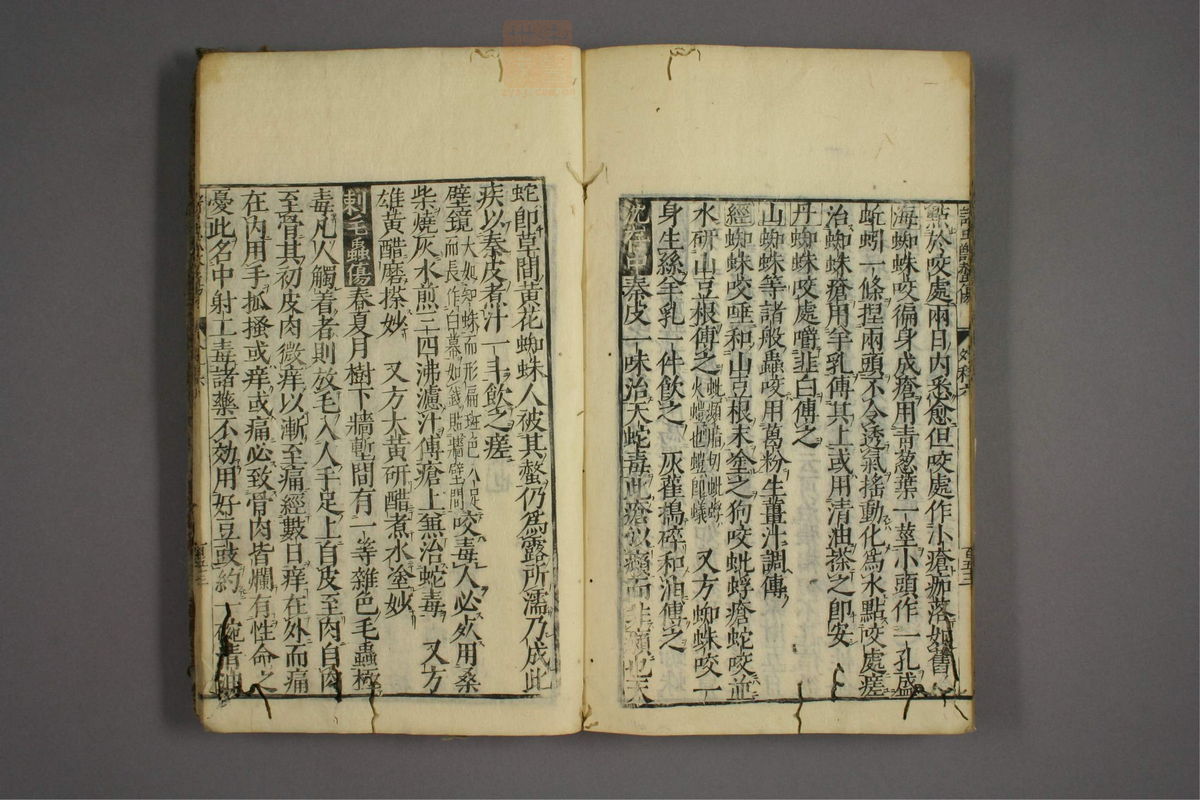 點於咬處兩日内悉愈但咬處作小瘡痂落如舊
海蜘蛛咬徧身成瘡用青葱葉一莖小頭作一孔盛
蚯蚓一條捏兩頭不令透氣揺動化爲水點咬處瘥
治蜘蛛瘡用羊乳傅其上或用清油搽之即安
丹蜘蛛咬處嚼韭白傅之
山蜘蛛等諸般蟲咬用萬粉生薑汁調傅
經蜘蛛咬唾和山豆根末塗之狗咬蚍蜉瘡蛇咬並
水研山豆根傅之 又方蜘蛛咬一
身生絲羊乳一件飲之 灰藋搗碎和油傅之
沈存中秦皮一味治天蛇毒此瘡似癩而非癩也天
蛇即草間黃花蜘蛛人被其螫仍爲露所濡乃成此
疾以秦皮煮汁一斗飲之瘥
壁鏡大如蜘蛛而形扁斑色八足而長作白幕如錢貼牆壁間咬毒人必死用桑
柴燒灰水煎三四沸濾汁傅瘡上無治蛇毒 又方
雄黃醋磨搽妙 又方大黃研醋煮水塗妙
刺毛蟲傷春夏月樹下牆塹間有一等雜色毛蟲極
毒凡人觸着者則放毛入人手足上自皮至肉自肉
至骨其初皮肉微痒以漸至痛經數日痒在外而痛
在内用手抓搔或痒或痛必致骨肉皆爛有性命之
憂此名中射工毒諸藥不効用好豆豉約一碗清油